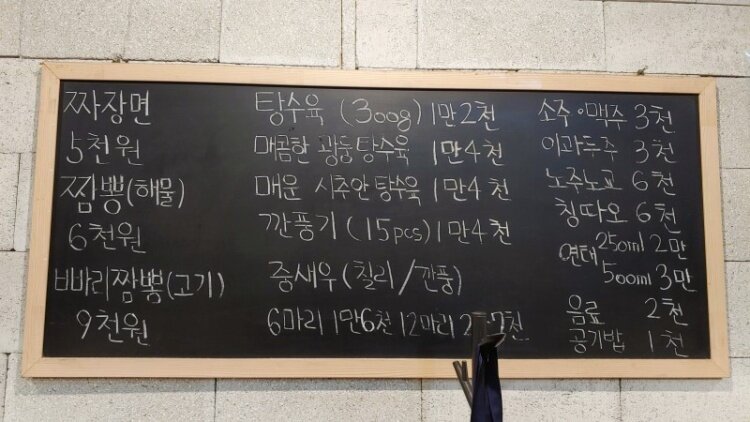 짜장면
5천원
짬뽕(해물)
6천원
빠바리짬뽕(고기)
9천원
탕수육 (300g) 1만2천
매콤한 광동탕수육 1만4천
매운 시추안탕수육 1만4천
깐풍기 (15pcs) 1만4천
중새우 (칠리/깐풍)
6마리 1만6천 12마리
소주·맥주 3천
이과두주 3천
노주노교 6천
칭따오 6천
연태 250ml 2만
500ml 3만
음료 2천
공기밥 1천